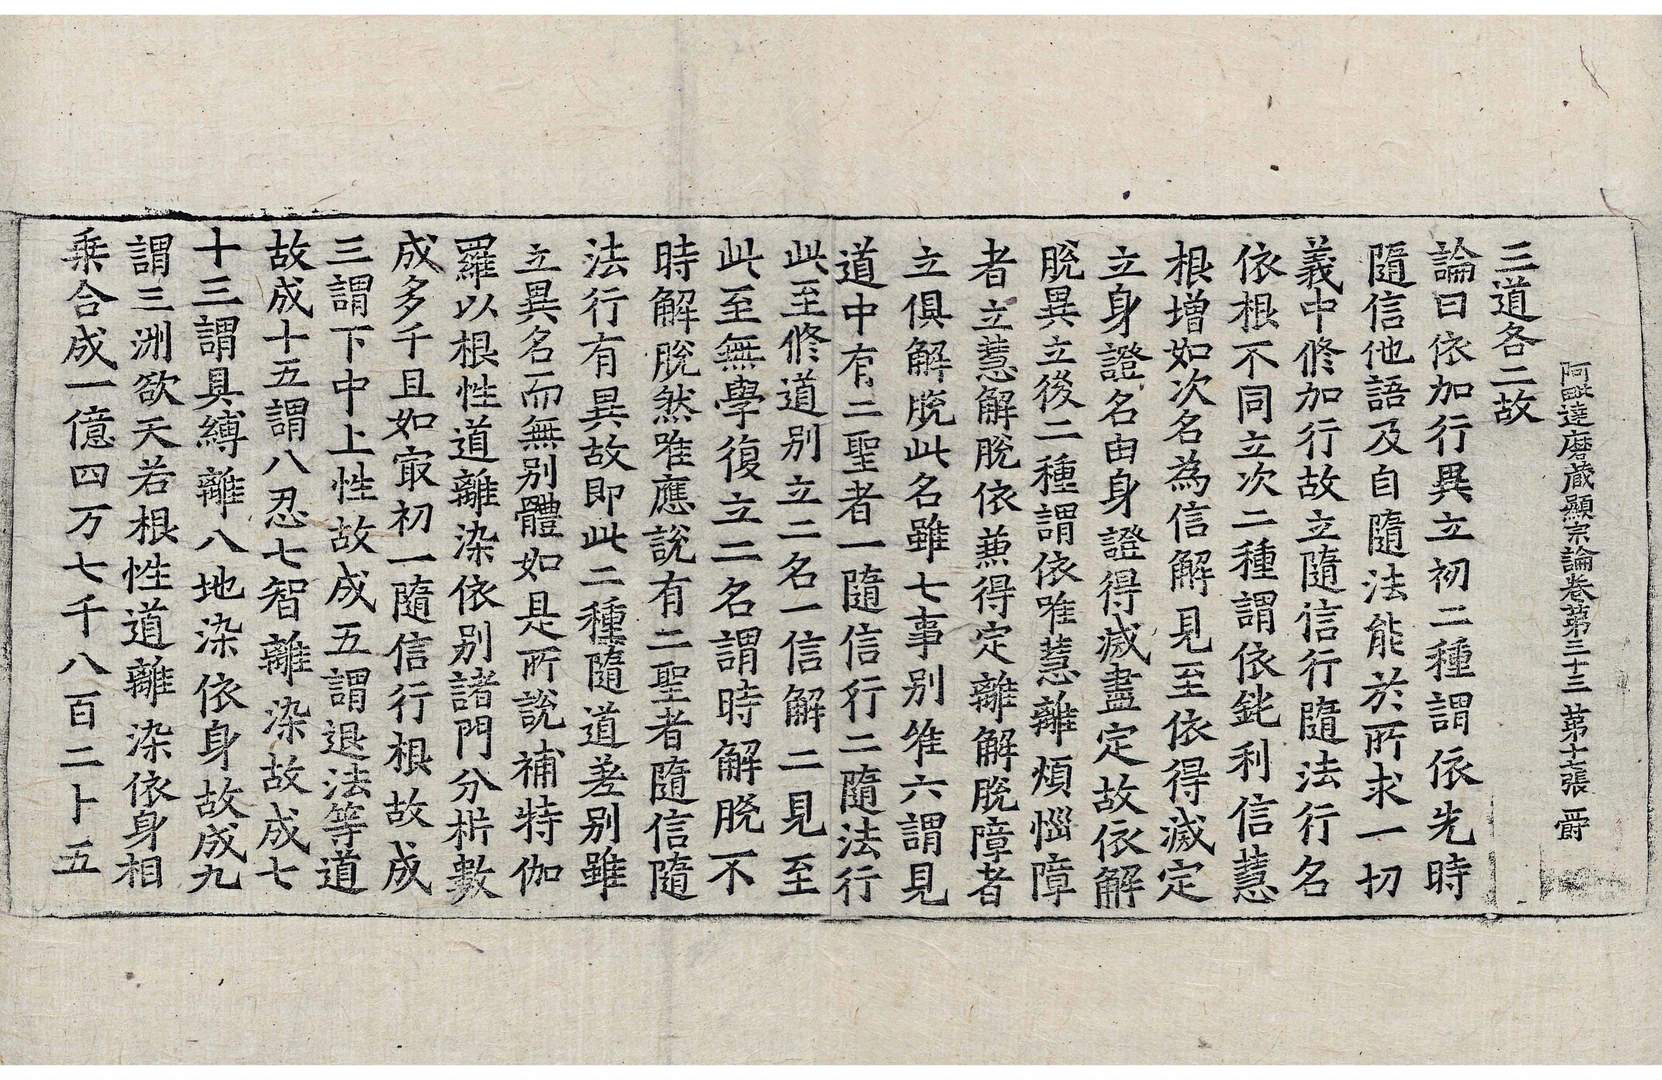 阿毗達磨蔵顯宗論卷第三十三 第十七張 爵
三道各二故
論曰依加行異立初二種謂依先時
隨信他語及自隨法能於所求一切
義中修加行故立隨信行隨法行名
依根不同立次二種謂依鈍利信慧
根增如次名為信解見至依得滅定
立身證名由身證得滅盡定故依解
脫異立後二種謂依唯慧離煩惱障
者立慧解脫依兼得定離解脫障者
立俱解脫此名雖七事別唯六謂見
道中有二聖者一隨信行二隨法行
此至修道別立二名一信解二見至
此至無學復立二名謂時解脫不
時解脫然唯應說有二聖者隨信隨
法行有異故即此二種隨道差別雖
立異名而無別體如是所說補特伽
羅以根性道離染依別諸門分析數
成多千且如㝡初一隨信行根故成
三謂下中上性故成五謂退法等道
故成十五謂八忍七智離染故成七
十三謂具縛離八地染依身故成九
謂三洲欲天若根性道離染依身相
乗合成一億四万七千八百二十五